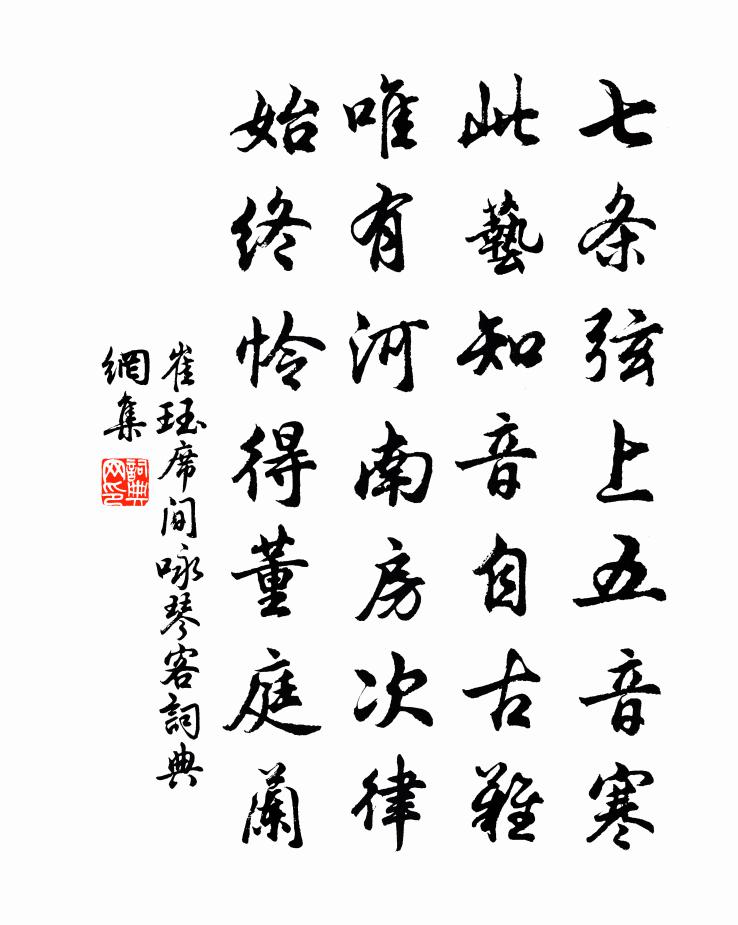 七条弦上五音寒
此藝知音自古難
唯有河南房次律
始終怜得董庭蘭
崔珏席间咏琴客詞典
網集
詞典
网印